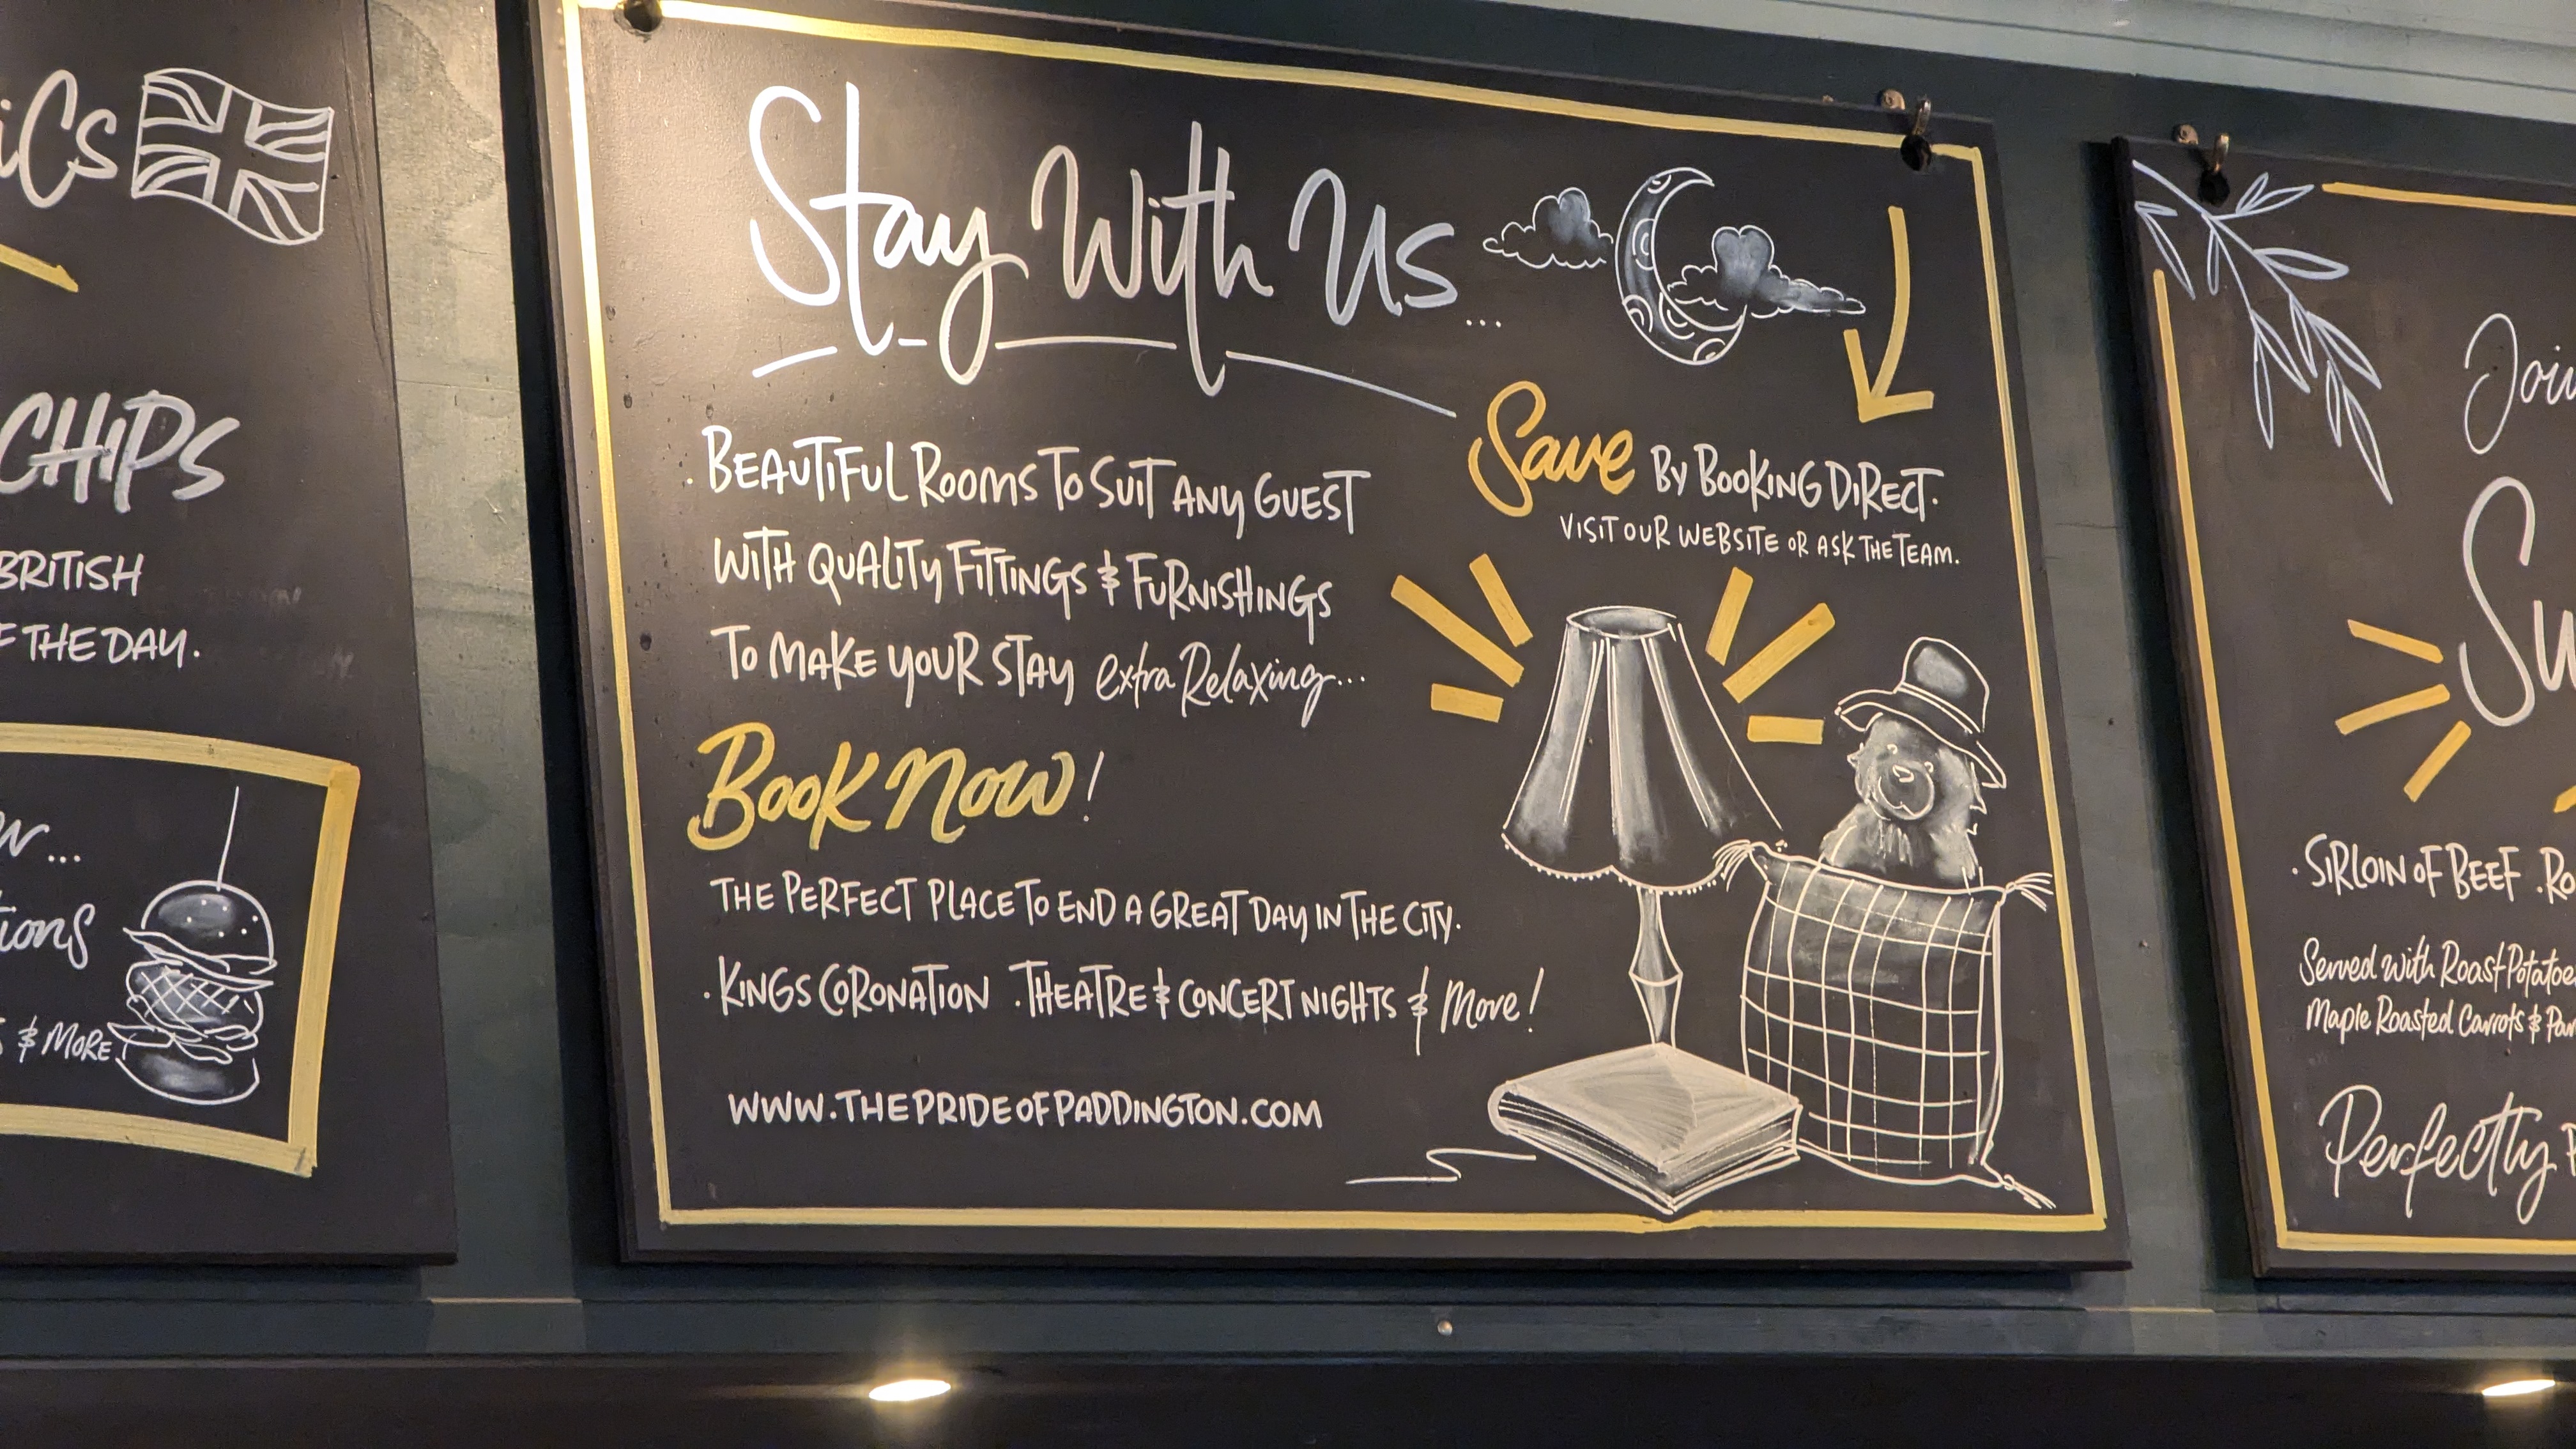 iCs
CHiPS
BRITISH
F THE DAY.
W...
tions
& MORE
Stay With Us...
Save By Booking Direct.
VISIT OUR WEBSITE OR ASK THE TEAM.
. BEAUTIFUL ROOMS TO SUIT ANY GUEST
WITH QUALITY FITTINGS & FURNISHINGS
TO MAKE YOUR STAY extra Relaxing...
Book Now!
THE PERFECT PLACE TO END A GREAT DAY IN THE CITY.
. KINGS CORONATION . THEATRE & CONCERT NIGHTS & More!
WWW.THEPRIDEOFPADDINGTON.COM
Join
Su
. SIRLOIN OF BEEF . Ro
Served with Roast Potatoe
Maple Roasted Carrots & Par
Perfectly